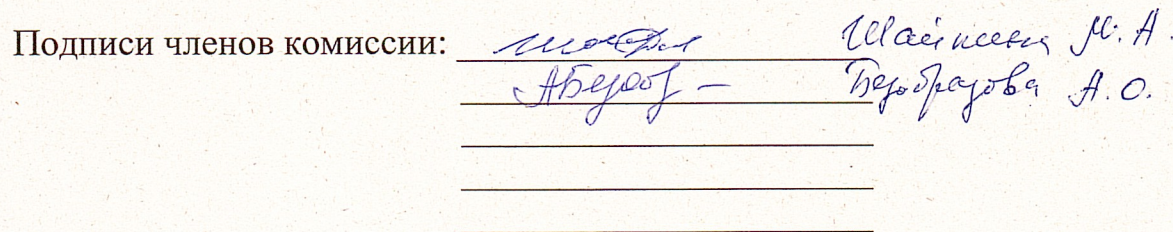 Подписи членов комиссии: Шайкина М. А.
АБезоб Безобразова А. О.